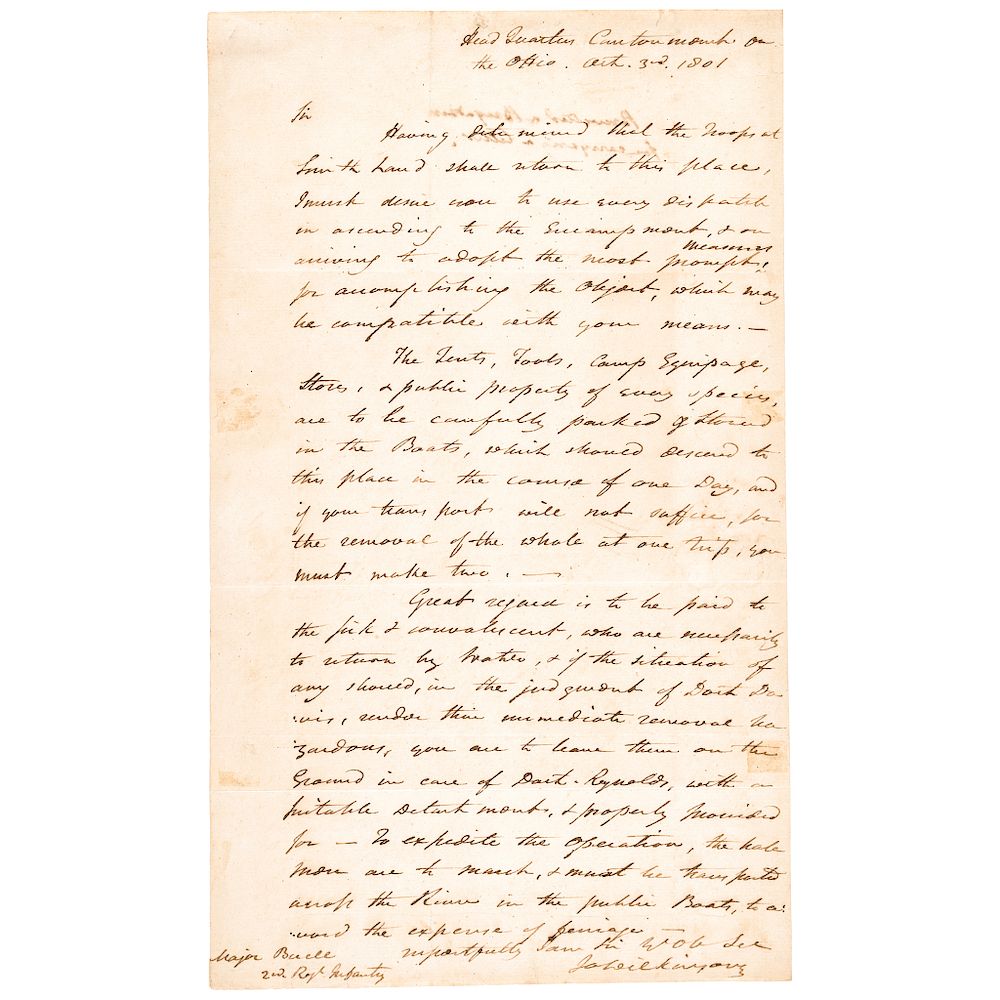 Head Quarters Cantonment on
the Ohio. Oct. 3rd. 1801
Sir
Having determined that the Troops at
Smith Land shall return to this place,
I must desire you to use every dispatch
in ascending to the Encampment, & on
measures
arriving to adopt the most prompt,
for accomplishing the Object, which may
be compatible with your means. —
The Tents, Tools, Camp Equipage,
Stores, & public property of every species,
are to be carefully packed & Stored
in the Boats, which should descend to
this place in the course of one Day, and
if your transports will not suffice, for
the removal of the whole at one trip, you
must make two. —
Great regard is to be paid to
the sick & convalescent, who are necessarily
to return by Water, & if the situation of
any should, in the judgment of Doct Da-
:vis, render their immediate removal ha
zardous, you are to leave them on the
Ground in care of Doct. Reynolds, with a
suitable Detachment, & properly provided
for — To expedite the Operation, the hale
Men are to march, & must be transported
across the River in the public Boats, to a:
:void the expense of ferriage
respectfully I am Sir Yr Ob Ser
Ja Wilkinson
Major Buell
2nd. Regt Infantry